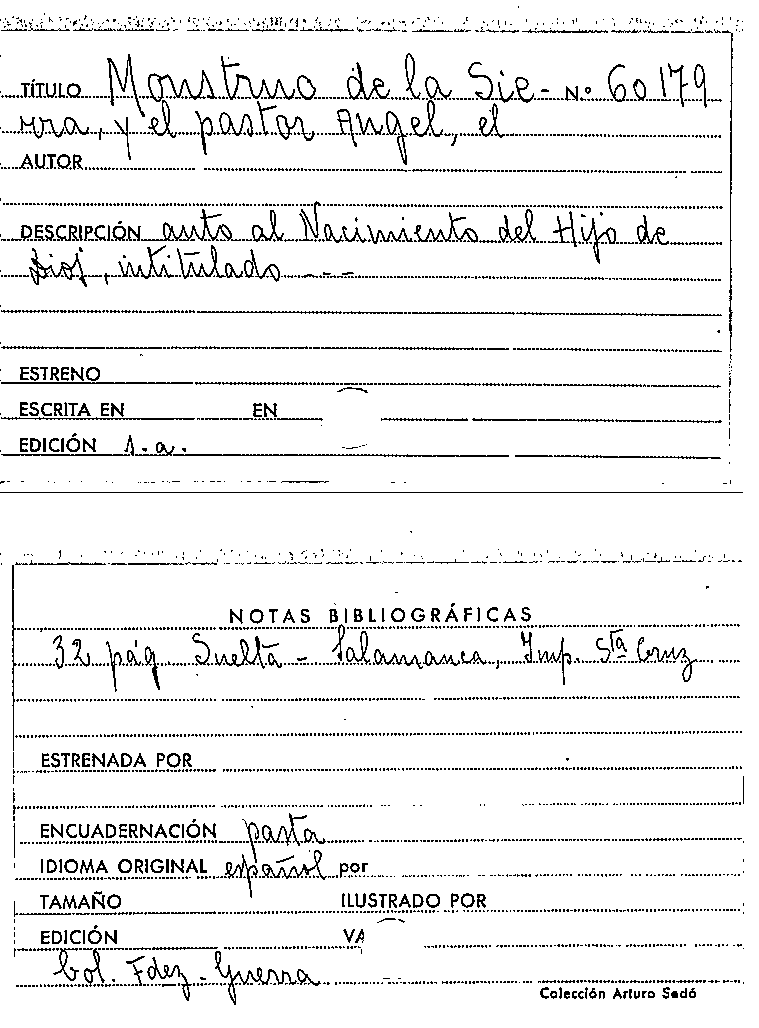 TÍTULO Monstruo de la Sie- N.º 60179
rra, y el pastor Angel, el
AUTOR
DESCRIPCIÓN auto al Nacimiento del Hijo de
Dios, intitulado ---
ESTRENO
ESCRITA EN EN
EDICIÓN s.a.
NOTAS BIBLIOGRÁFICAS
32 pág. Suelta - Salamanca, Imp. Sta Cruz
ESTRENADA POR
ENCUADERNACIÓN pasta
IDIOMA ORIGINAL español por
TAMAÑO ILUSTRADO POR
EDICIÓN VA
Col. Fdez-Guerra
Colección Arturo Sedó